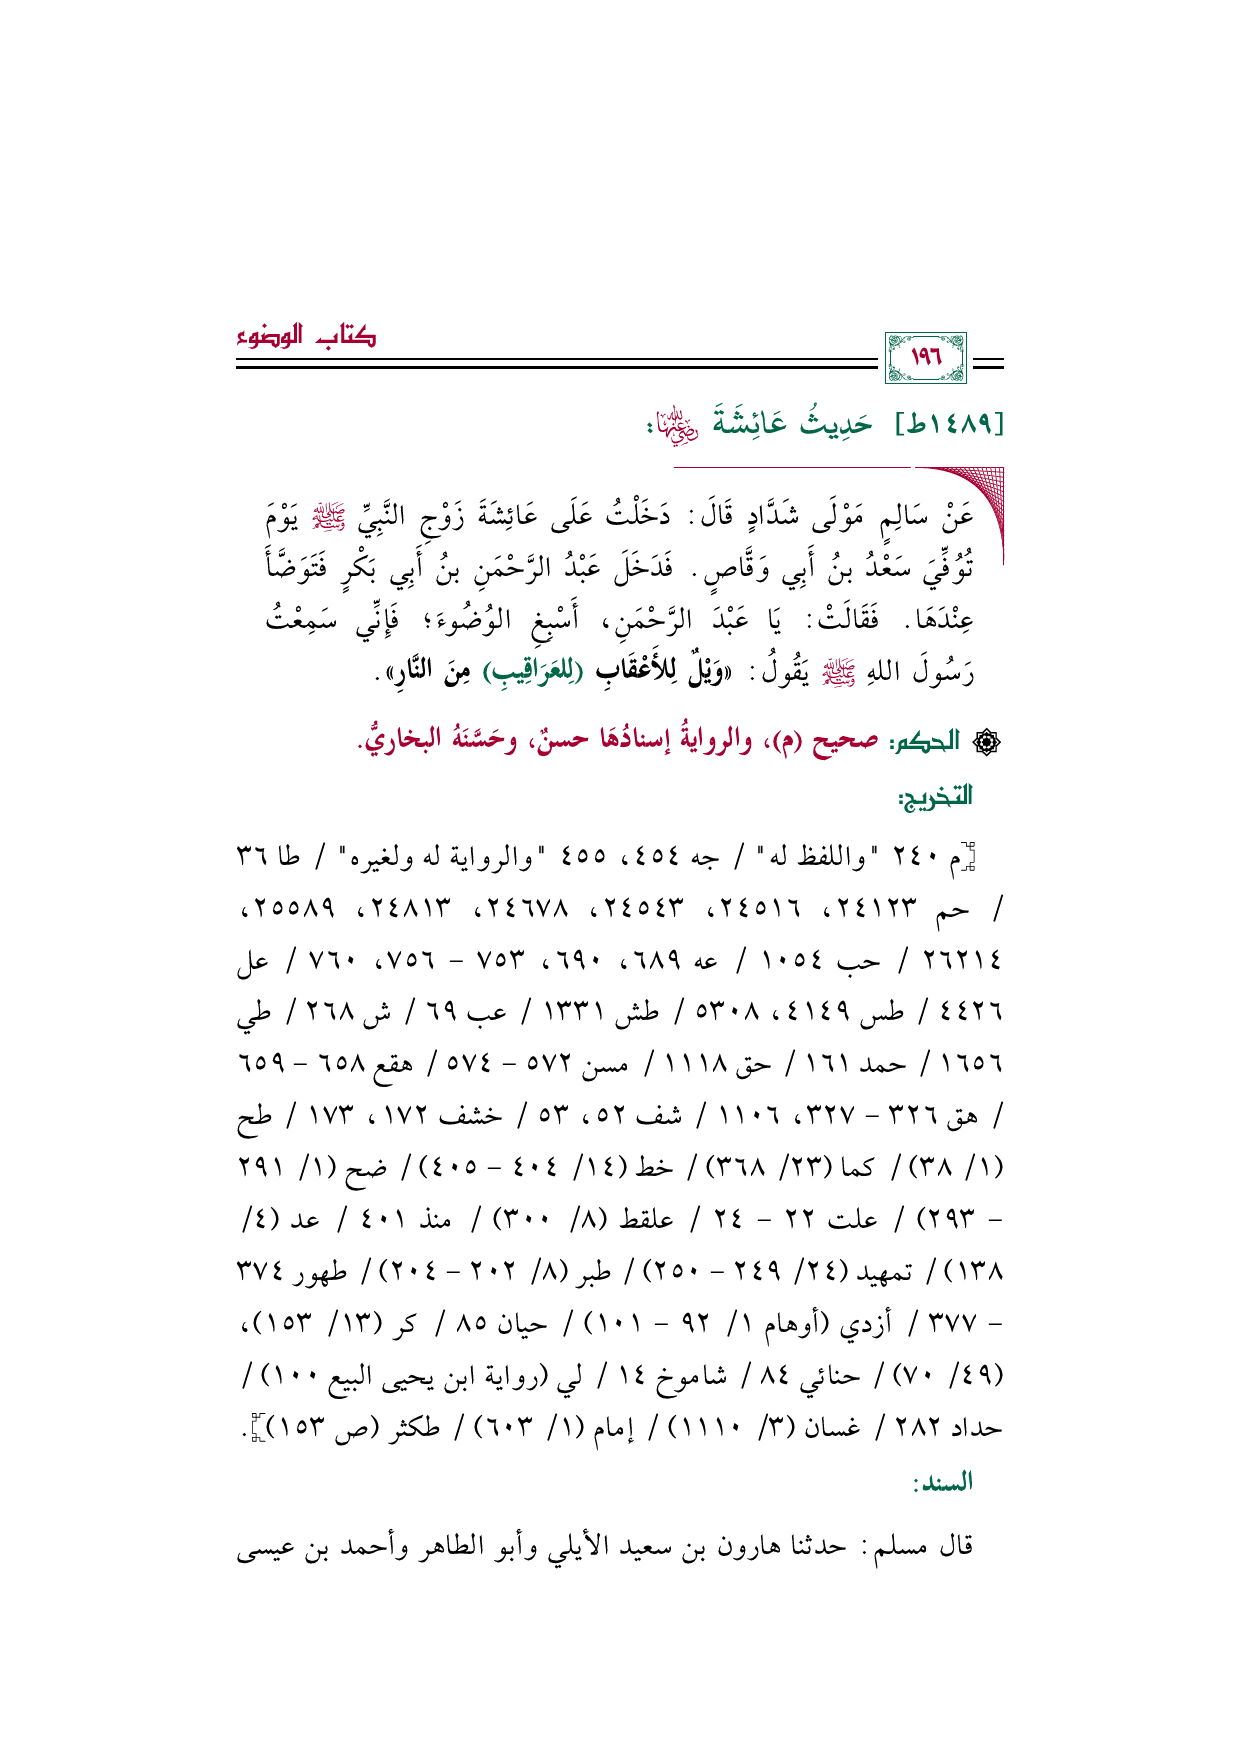 كتاب الوضوء
١٩٦
[١٤٨٩ط] حَدِيثُ عَائِشَةَ رضي الله عنها:
عَنْ سَالِمٍ مَوْلَى شَدَّادٍ قَالَ: دَخَلْتُ عَلَى عَائِشَةَ زَوْجِ النَّبِيِّ ﷺ يَوْمَ
تُوُفِّيَ سَعْدُ بنُ أَبِي وَقَّاصٍ. فَدَخَلَ عَبْدُ الرَّحْمَنِ بنُ أَبِي بَكْرٍ فَتَوَضَّأَ
عِنْدَهَا. فَقَالَتْ: يَا عَبْدَ الرَّحْمَنِ، أَسْبِغِ الوُضُوءَ؛ فَإِنِّي سَمِعْتُ
رَسُولَ اللهِ ﷺ يَقُولُ: «وَيْلٌ لِلأَعْقَابِ (لِلعَرَاقِيبِ) مِنَ النَّارِ».
الحكم: صحيح (م)، والروايةُ إسنادُهَا حسنٌ، وحَسَّنَهُ البخاريُّ.
التخريج:
[م ٢٤٠ "واللفظ له" / جه ٤٥٤، ٤٥٥ "والرواية له ولغيره" / طا ٣٦
/ حم ٢٤١٢٣، ٢٤٥١٦، ٢٤٥٤٣، ٢٤٦٧٨، ٢٤٨١٣، ٢٥٥٨٩،
٢٦٢١٤ / حب ١٠٥٤ / عه ٦٨٩، ٦٩٠، ٧٥٣ – ٧٥٦، ٧٦٠ / عل
٤٤٢٦ / طس ٤١٤٩، ٥٣٠٨ / طش ١٣٣١ / عب ٦٩ / ش ٢٦٨ / طي
١٦٥٦ / حمد ١٦١ / حق ١١١٨ / مسن ٥٧٢ – ٥٧٤ / هقع ٦٥٨ – ٦٥٩
/ هق ٣٢٦ – ٣٢٧، ١١٠٦ / شف ٥٢، ٥٣ / خشف ١٧٢، ١٧٣ / طح
(١/ ٣٨) / كما (٢٣/ ٣٦٨) / خط (١٤/ ٤٠٤ – ٤٠٥) / ضح (١/ ٢٩١
– ٢٩٣) / علت ٢٢ – ٢٤ / علقط (٨/ ٣٠٠) / منذ ٤٠١ / عد (٤/
١٣٨) / تمهيد (٢٤/ ٢٤٩ – ٢٥٠) / طبر (٨/ ٢٠٢ – ٢٠٤) / طهور ٣٧٤
– ٣٧٧ / أزدي (أوهام ١/ ٩٢ – ١٠١) / حيان ٨٥ / كر (١٣/ ١٥٣)،
(٤٩/ ٧٠) / حنائي ٨٤ / شاموخ ١٤ / لي (رواية ابن يحيى البيع ١٠٠) /
حداد ٢٨٢ / غسان (٣/ ١١١٠) / إمام (١/ ٦٠٣) / طكثر (ص ١٥٣)].
السند:
قال مسلم: حدثنا هارون بن سعيد الأيلي وأبو الطاهر وأحمد بن عيسى